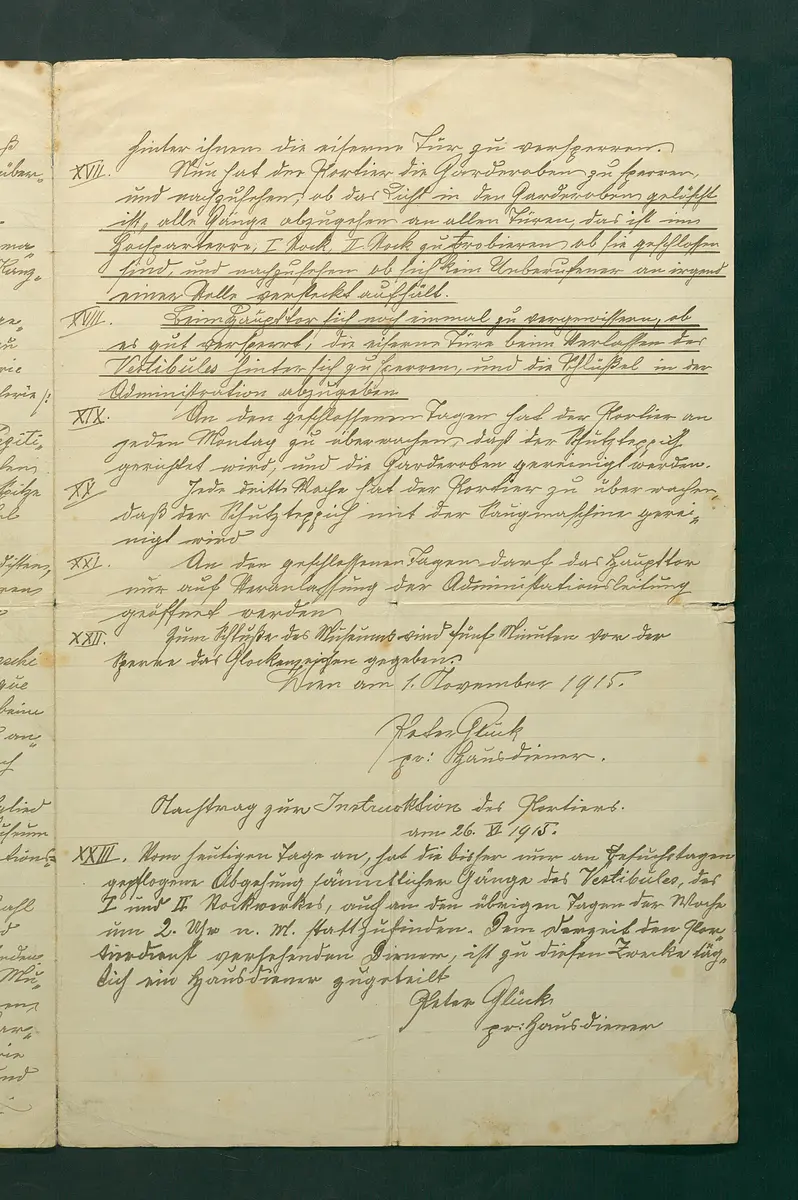 hinter ihnen die eiserne Tür zu versperren.
XVII. Nun hat der Portier die Garderoben zu sperren,
und nachzusehen, ob das Licht in den Garderoben gelöscht
ist, alle Gänge abzugehen an allen Türen, das ist im
Hochparterre, I. Stock, II. Stock zu probieren ob sie geschlossen
sind, und nachzusehen ob sich kein Unberufener an irgend
einer Stelle versteckt aufhält.
XVIII. Beim Haupttor sich noch einmal zu vergewissern, ob
es gut versperrt, die eiserne Türe beim Verlassen des
Vestibules hinter sich zu sperren, und die Schlüßel in der
Administration abzugeben
XIX. An den geschlossenen Tagen hat der Portier an
jeden Montag zu überwachen, daß der Schutzteppich
gerichtet wird, und die Garderoben gereinigt werden.
XX Jede dritte Woche hat der Portier zu überwachen,
daß der Schutzteppich mit der Saugmaschine gerei-
nigt wird
XXI. An den geschlossenen Tagen darf das Haupttor
nur auf Veranlassung der Administationsleitung
geöffnet werden
XXII. Zum Schluße des Museums wird fünf Minuten vor der
Sperre das Glockenzeichen gegeben.
Wien am 1. November 1915.
Peter Glück
pr: Hausdiener.
Nachtrag zur Instruktion des Portiers.
am 26. XI 1915.
XXIII. Vom heutigen Tage an, hat die bisher nur an Besuchstagen
gepflogene Abgehung sämmtlicher Gänge des Vestibules, des
I und II Stockwerkes, auch an den übrigen Tagen der Woche
um 2. Uhr n. M. stattzufinden. Dem derzeit den Por-
tierdienst versehenden Diener, ist zu diesem Zwecke täg-
lich ein Hausdiener zugeteilt
Peter Glück
pr: Hausdiener